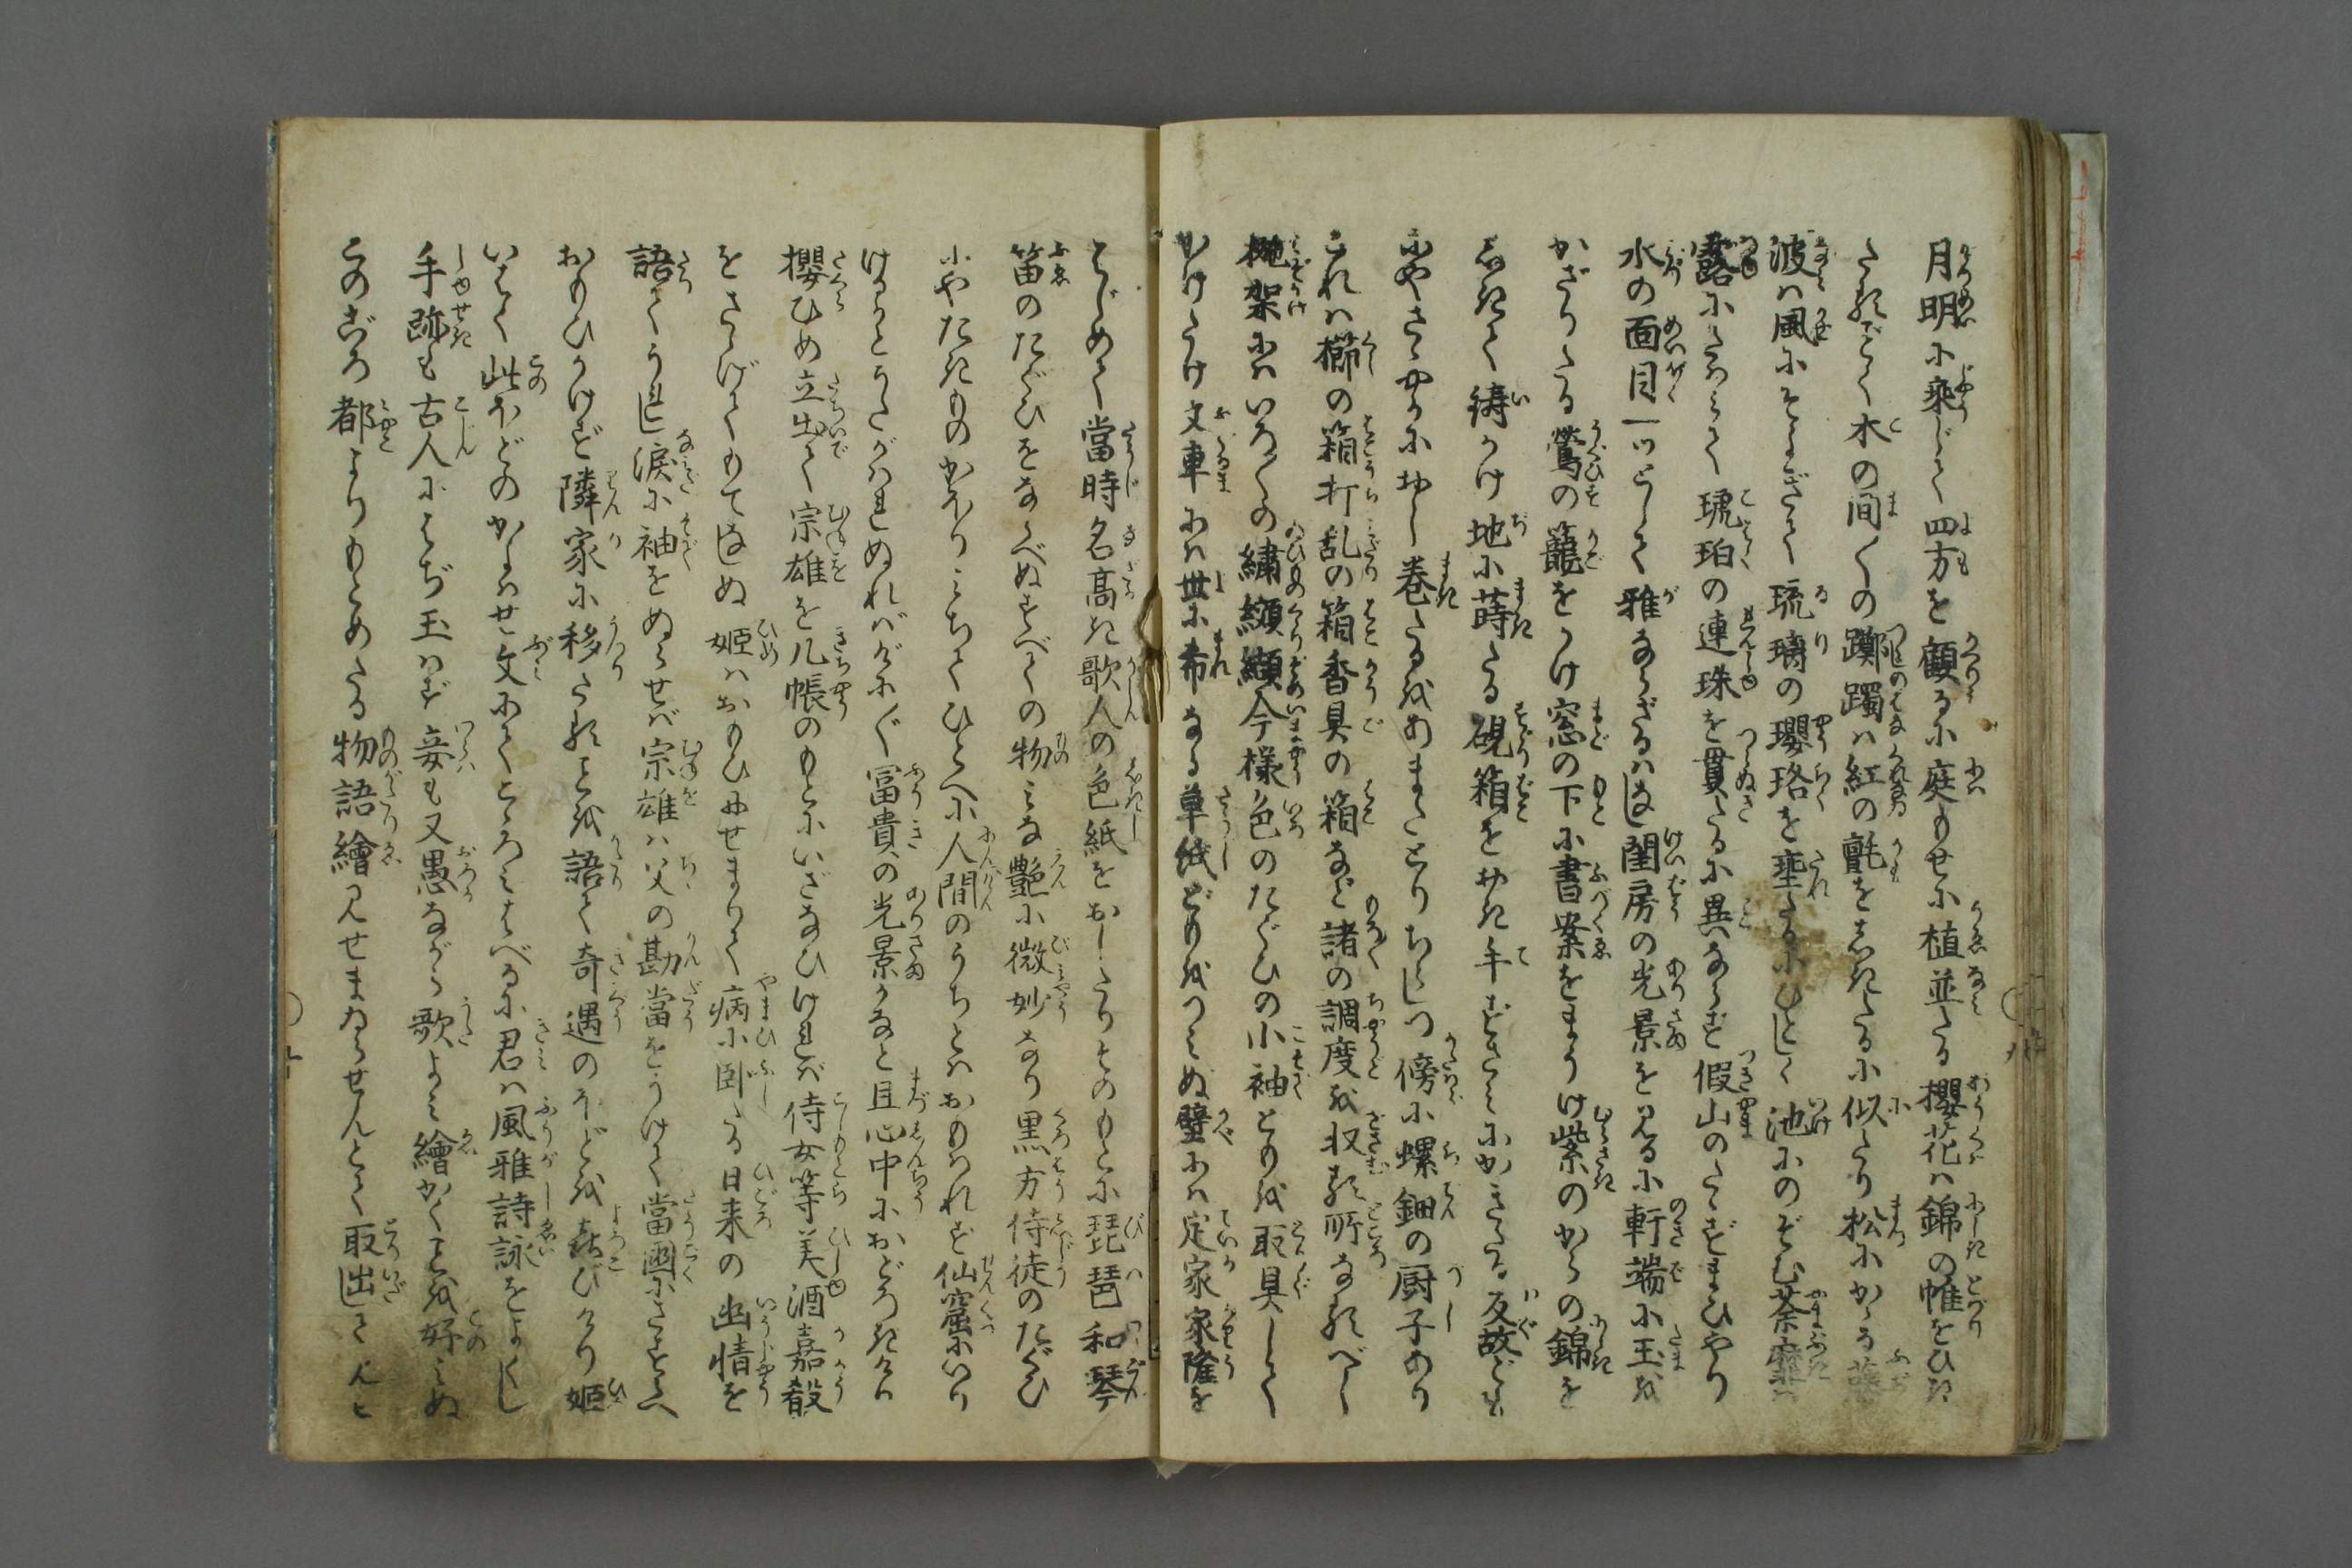 月明に乘じて四方を顧るに庭もせに植並たる櫻花は錦の帷をひき
たるごとく木の間〱の躑躅は紅の氈をしきたるに似たり松にかゝる藤
波は風にそよぎて琉璃の瓔珞を埀たるにひとしく池にのぞむ荼蘼は
露にたわみて琥珀の連珠を貫たるに異ならず假山のたゝずまひやり
水の面目一ツとして雅ならざるはなし閨房の光景を見るに軒端に玉を
かざりたる鶯の籠をかけ窓の下に書案をまうけ紫のからの錦を
しきて鑄かけ地に蒔たる硯箱をおき手ずさみにかきたる反故ども
にやさゝやかにおし卷たるをあまたとりちらしつ傍に螺鈿の厨子あり
これは櫛の箱打乱の箱香具の箱など諸の調度を収る所なるべし
桃架にはいろ〱の繡纐纈今樣色のたぐひの小袖ともを取具して
かけつけ文車には世に希なる草紙どもをつみぬ壁には定家家隆を
はじめて當時名高き歌人の色紙をおしたりそのもとに琵琶和琴
笛のたぐひをならべぬすべての物みな艶に微妙なり黒方侍従のたぐひ
にやたきものかをりみちてひとへに人間のうちとはおもはれず仙窟にいり
けるかとうたがはれぬればげに〱冨貴の光景かなと且心中におどろきけり
櫻ひめ立出て宗雄を几帳のもとにいざなひければ侍女等美酒嘉殽
をさゝげてもてなしぬ姫はおもひにせまりて病に卧たる日来の幽情を
語てうれし淚に袖をぬらせば宗雄は父の勘當をうけて當國にさまよへ
おもひかけず隣家に移たることを語て奇遇のほどを㐂びけり姫
いはく此ほどのかよはせ文にてこゝろみはべるに君は風雅詩詠をよくし
手跡も古人にはぢ玉はず妾も又愚ながら歌よみ繪かくことを好みぬ
このごろ都よりもとめたる物語繪見せまゐらせんとて取出させんと